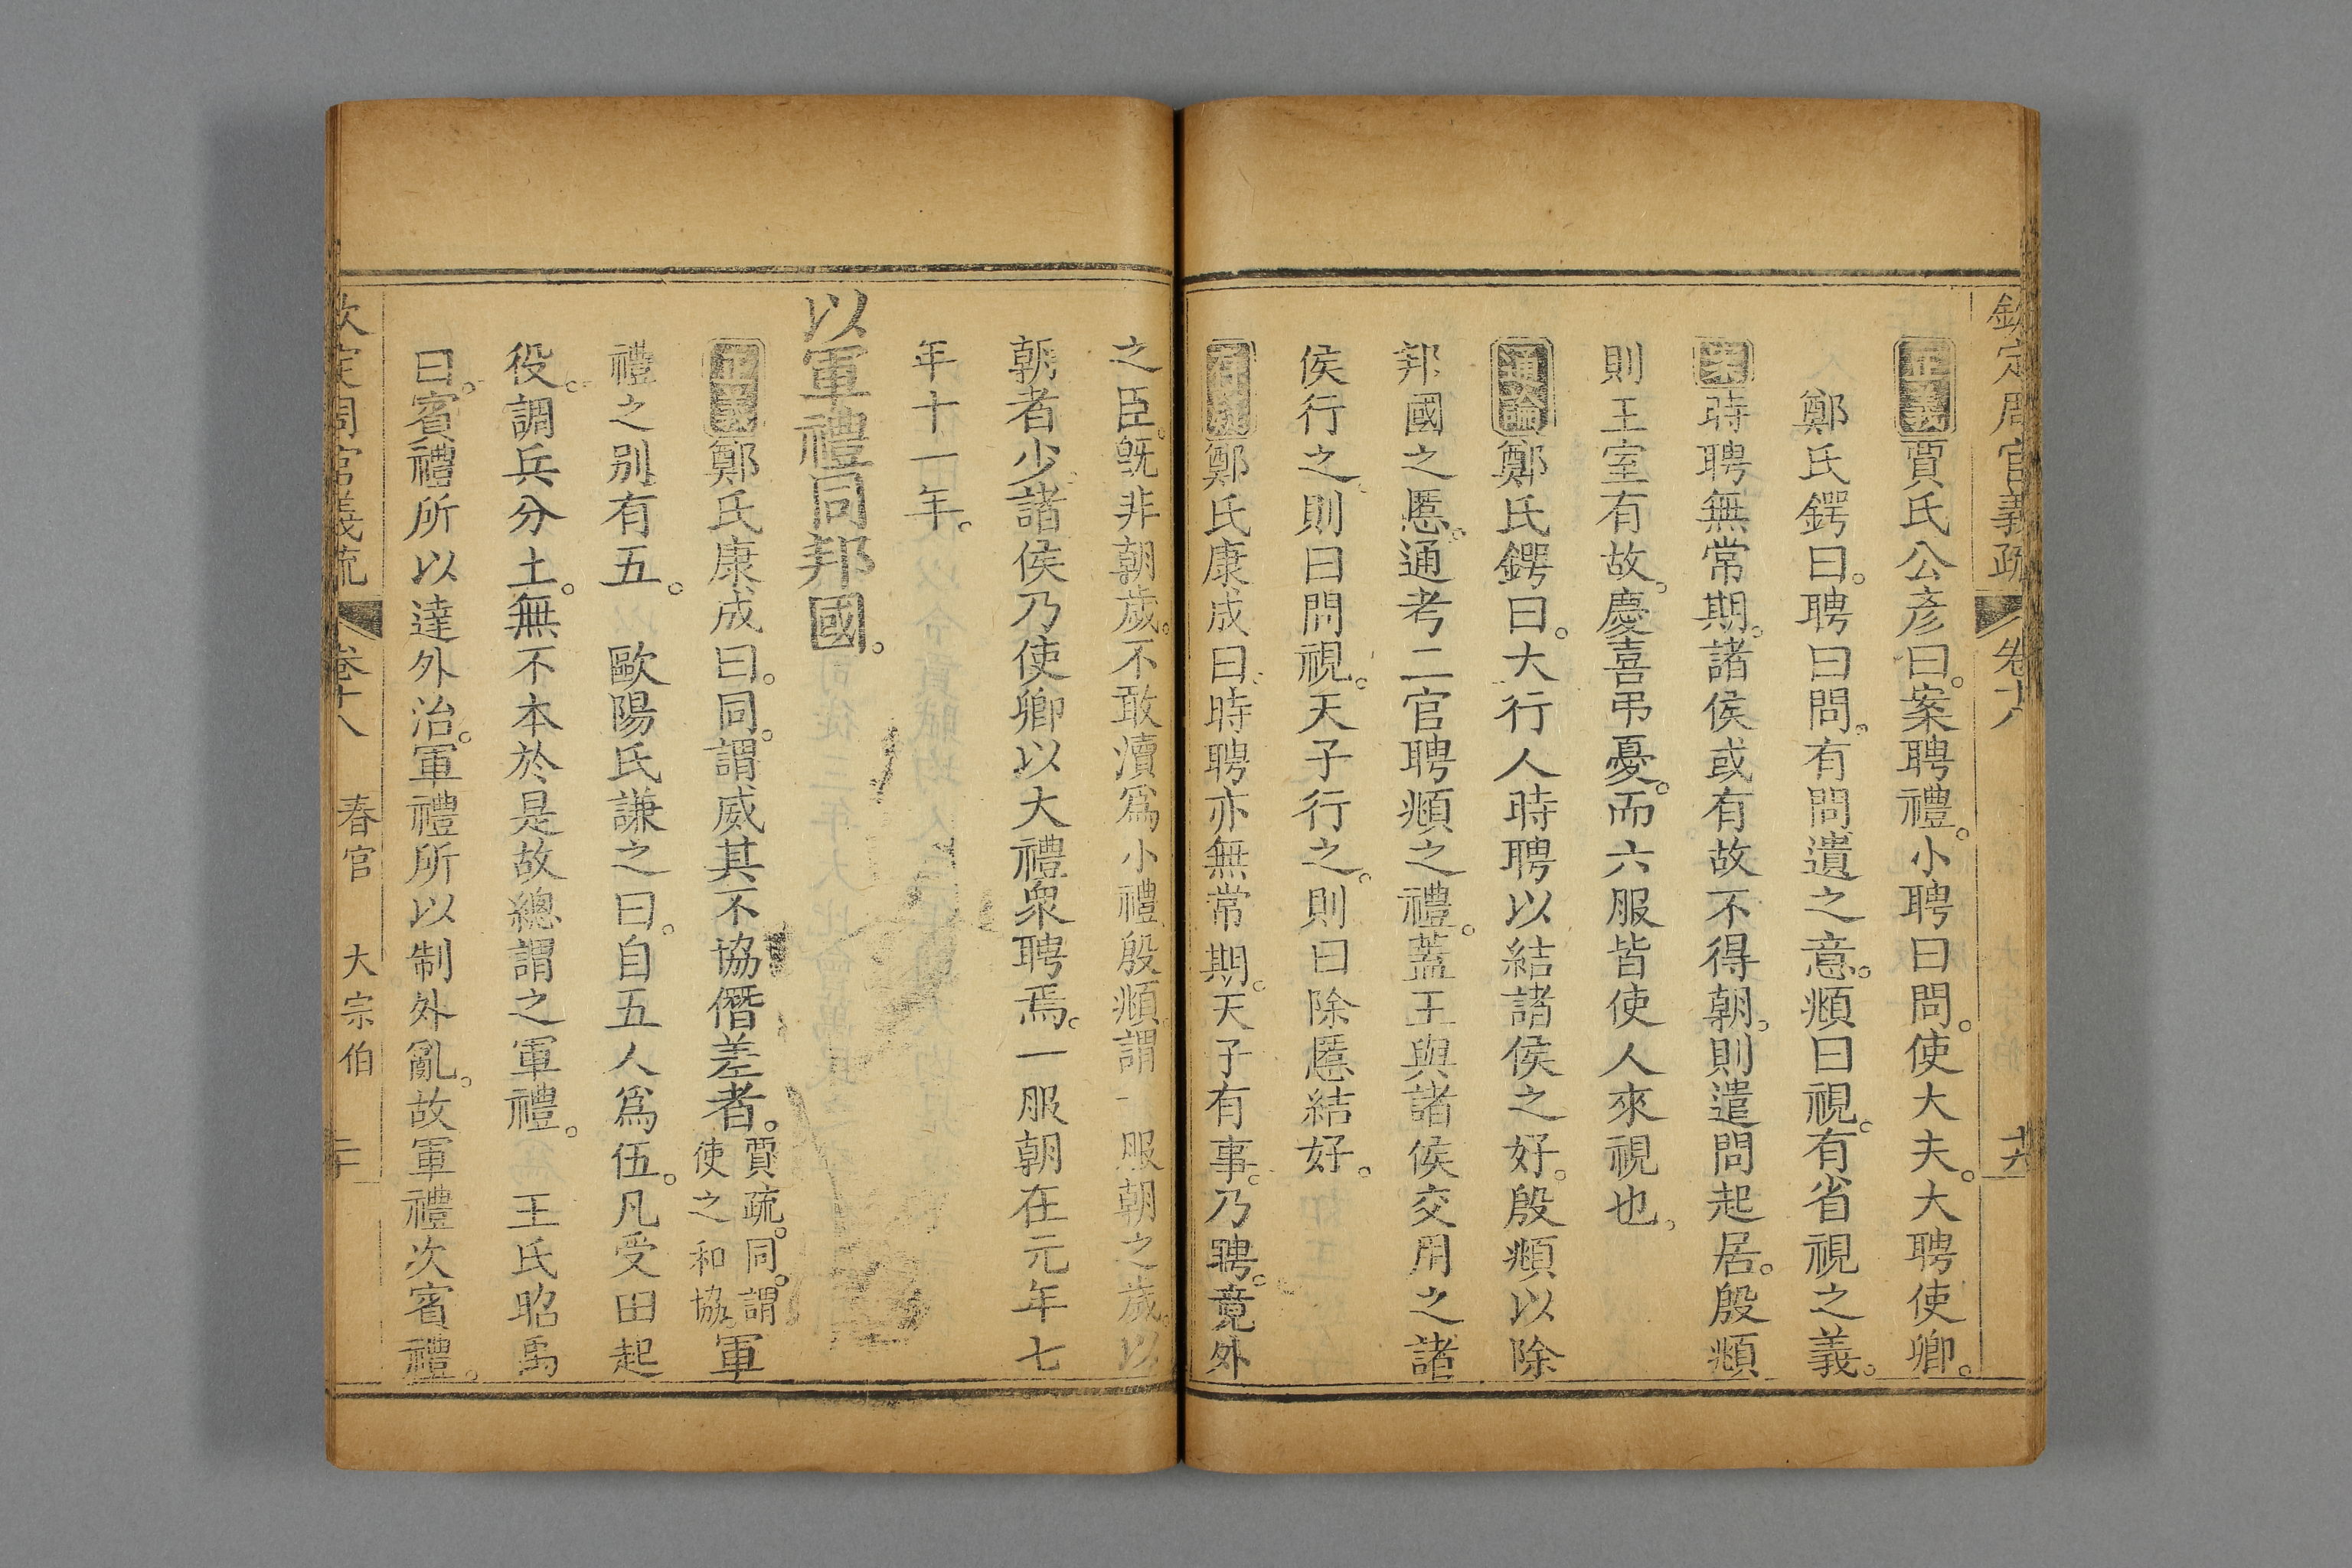 欽定周官義疏 卷十八
正義賈氏公彥曰。案聘禮。小聘曰問。使大夫。大聘使卿。
鄭氏鍔曰。聘曰問。有問遺之意。頫曰視。有省視之義。
案時聘無常期。諸侯或有故不得朝。則遣問起居。殷頫
則王室有故。慶喜弔憂。而六服皆使人來視也。
通論鄭氏鍔曰。大行人時聘以結諸侯之好。殷頫以除
邦國之慝。通考二官聘頫之禮。蓋王與諸侯交用之諸
侯行之。則曰問視。天子行之。則曰除慝結好。
鄭氏康成曰。時聘亦無常期。天子有事。乃聘。竟外
之臣。旣非朝歲。不敢瀆爲小禮。殷頫謂一服朝之歲。以
朝者少。諸侯乃使卿以大禮衆聘焉。一服朝在元年七
年十一年。
以軍禮同邦國。
正義鄭氏康成曰。同。謂威其不協僭差者。賈疏。同。謂使之和協。軍
禮之别有五。 歐陽氏謙之曰。自五人爲伍。凡受田起
役。調兵分土。無不本於是故總謂之軍禮。 王氏昭禹
曰。賓禮所以達外治。軍禮所以制外亂。故軍禮次賓禮。
欽定周官義疏 卷十八 春官 大宗伯